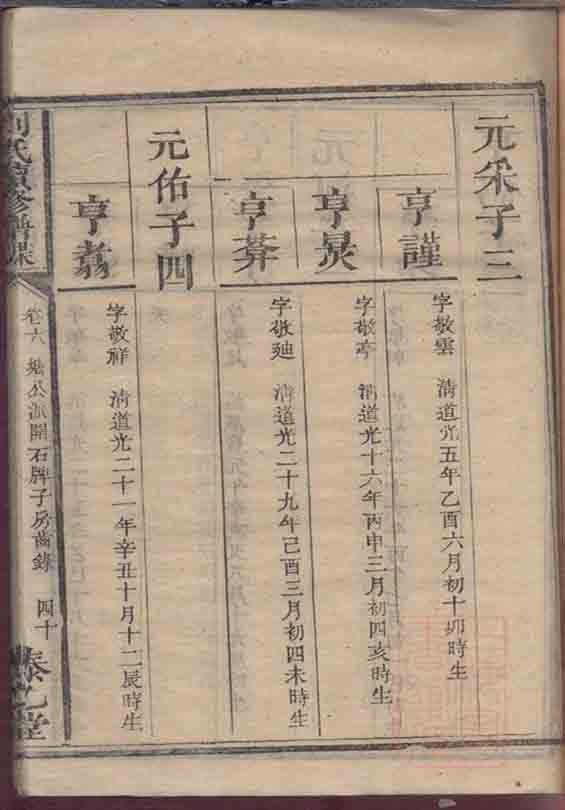 元采子三
亨謹
字敬雲 清道光五年乙酉六月初十卯時生
亨炅
字敬亭 清道光十六年丙申三月初四亥時生
亨莽
字敬廸 清道光二十九年己酉三月初四未時生
元佑子四
亨翥
字敬祥 清道光二十一年辛丑十月十二辰時生
氏續修譜牒
卷六 公派開石牌子房齒錄 四十